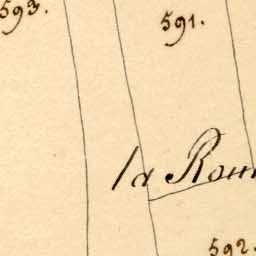 593.
591.
la Rou
592.